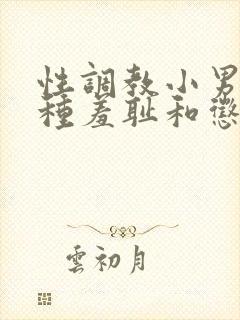 性調教小男
種羞耻和懲
雲初月